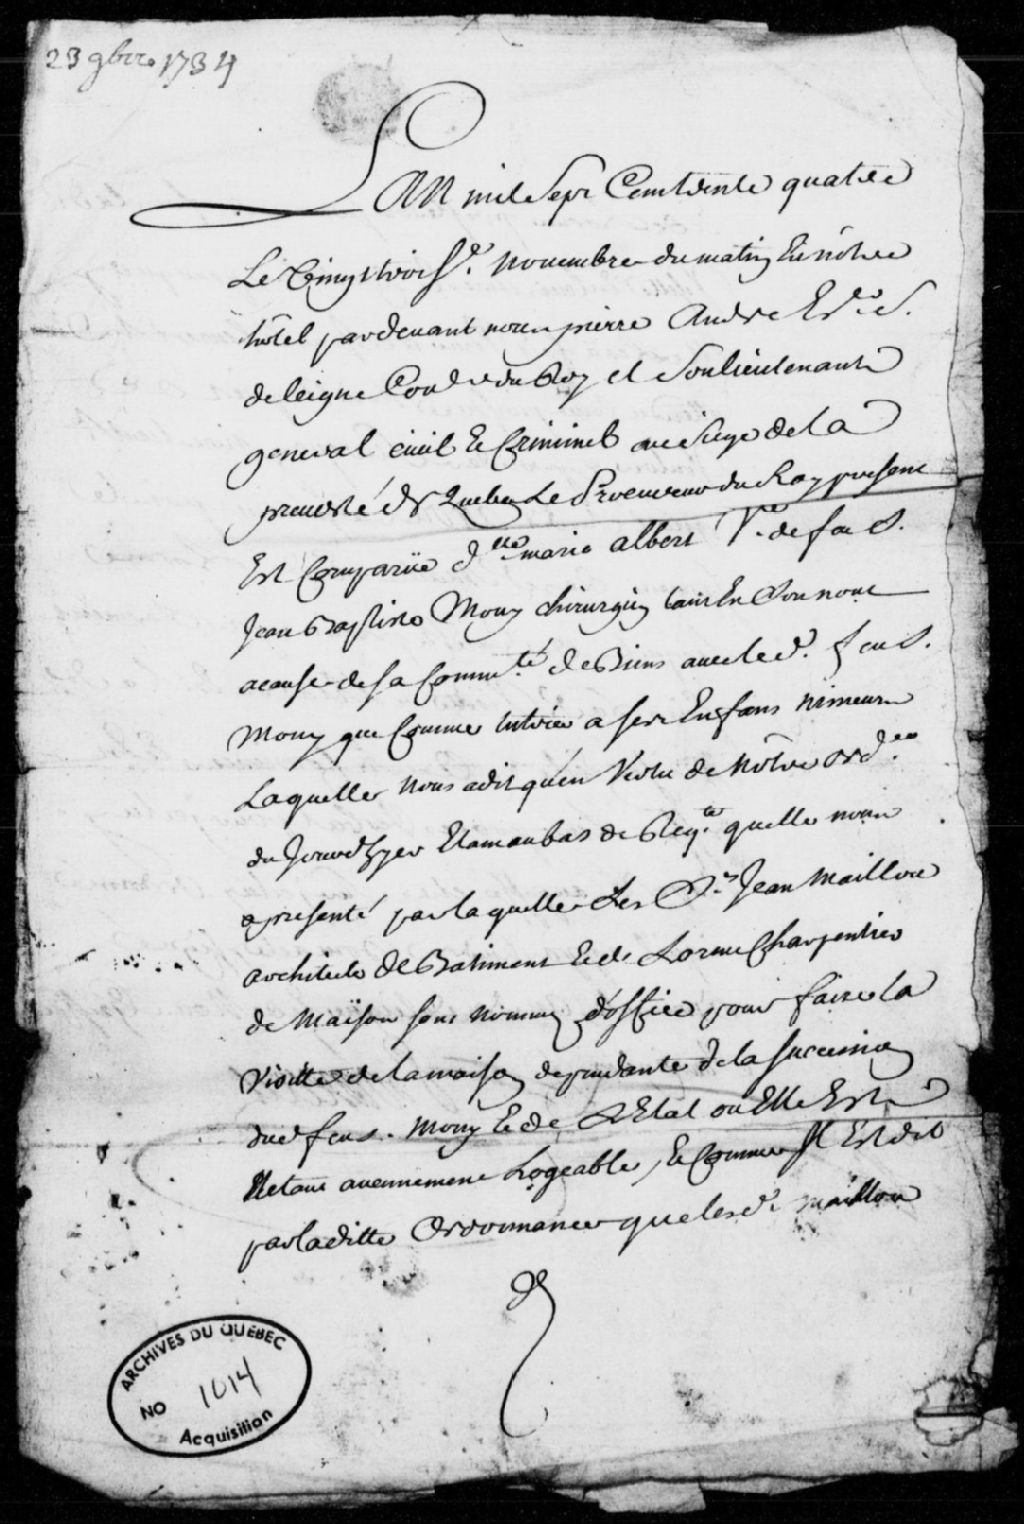 23 9bre 1734
L'an mil sept Cent trente quatre
Le Vingt trois d. novembre du matin En nôtre
hôtel pardevant nous pierre André Er. S.
de leigne Conser du Roy et Son lieutenant
general civil et Criminel au siege de la
prevosté de Quebec Le Procureur du Roy present
Est Comparüe d.lle marie albert Ve. de feu S.
Jean Baptiste Mony chirurgien tant En Son nom
a cause de sa Commté. de Biens avec led. feu S.
Mony que Comme tutrice a ses Enfans mineurs
Laquelle Nous a dit qu'en Vertu de Nôtre ordce.
du Jour d'hyer Etant au bas de Reqte. quelle nous
a presenté par laquelle Les Srs. Jean Maillou
architecte de Batiment et de Lorme Charpentier
de Maison sont Nommez d'office pour faire la
Visitte de la maison dependante de la succession
dud feu s. Mony et de L'Etat ou Elle Est
Netant aucunement Logeable, Et Comme Il Est dit
par laditte Ordonnance que lesd. maillou
de
ARCHIVES DU QUÉBEC
NO 1014
Acquisition